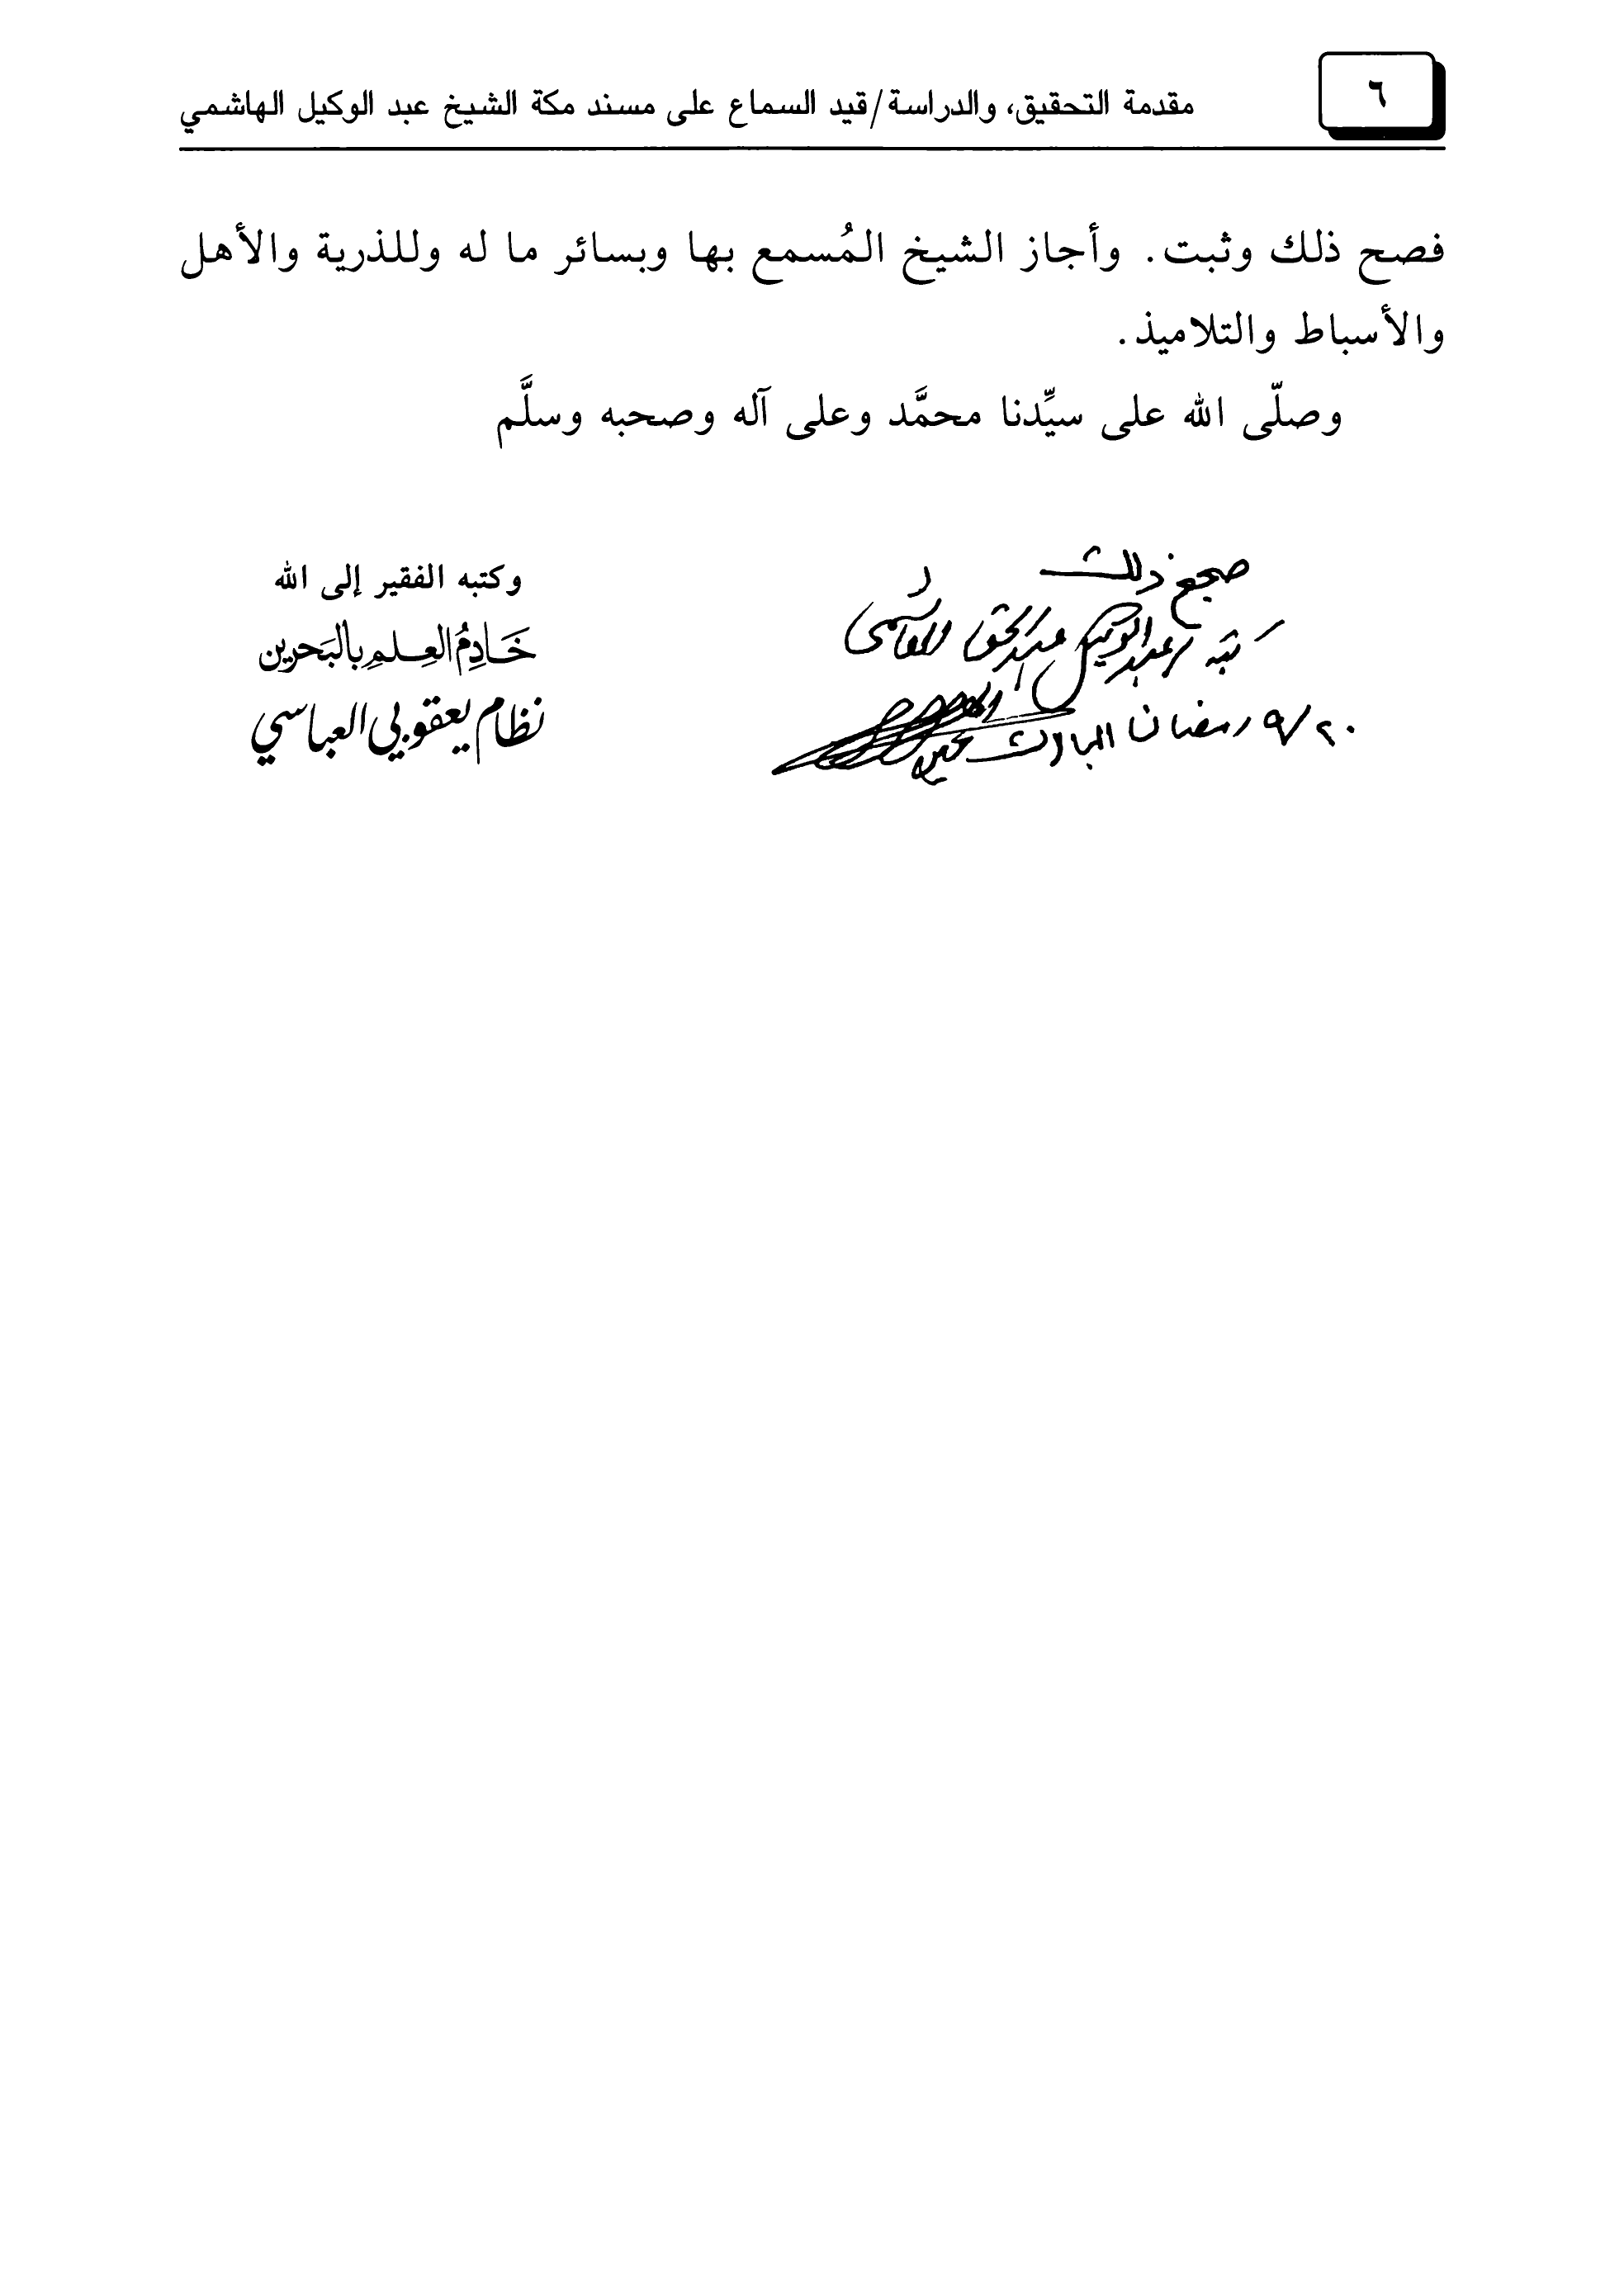 ٦
مقدمة التحقيق، والدراسة/قيد السماع على مسند مكة الشيخ عبد الوكيل الهاشمي
فصح ذلك وثبت. وأجاز الشيخ المُسمع بها وبسائر ما له وللذرية والأهل
والأسباط والتلاميذ.
وصلّى الله على سيِّدنا محمَّد وعلى آله وصحبه وسلَّم
صحيح ذلك
كتبه عبد الوكيل عبد الحق الهاشمي
٩/٢٠ رمضان المبارك
وكتبه الفقير إلى الله
خَادِمُ العِلمِ بالبَحرين
نظام يعقوبي العباسي